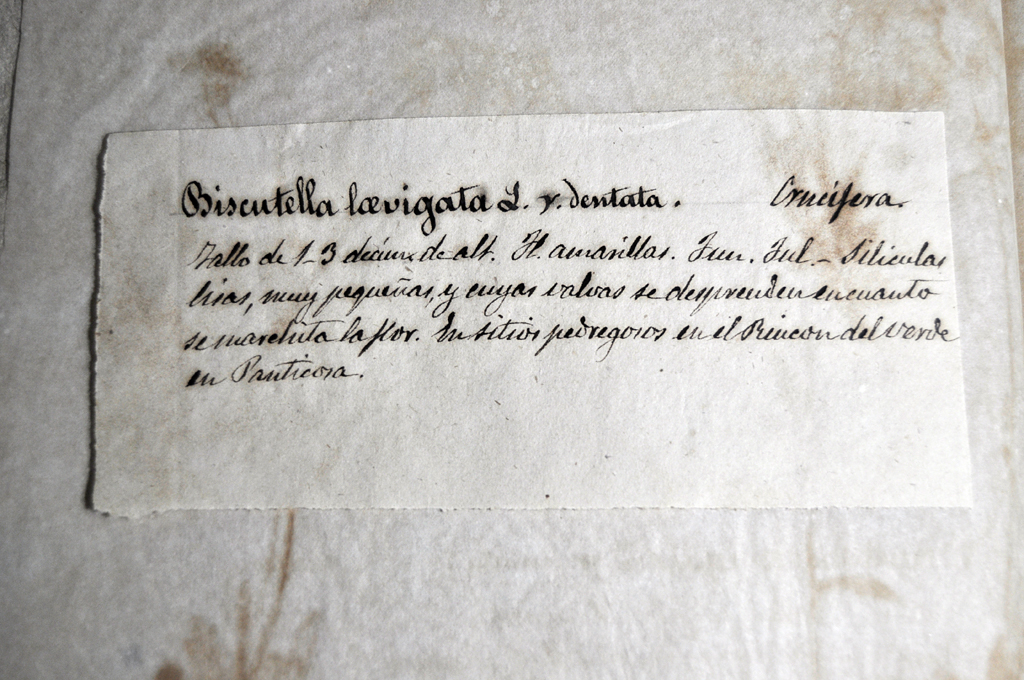 Biscutella lævigata L. v. dentata. Crucifera.
Tallo de 1-3 décim. de alt. Fl. amarillas. Jun. Jul. - Siliculas
lisas, muy pequeñas, y cuyas valvas se desprenden en cuanto
se marchita la flor. En sitios pedregosos en el Rincon del Verde
en Panticosa.